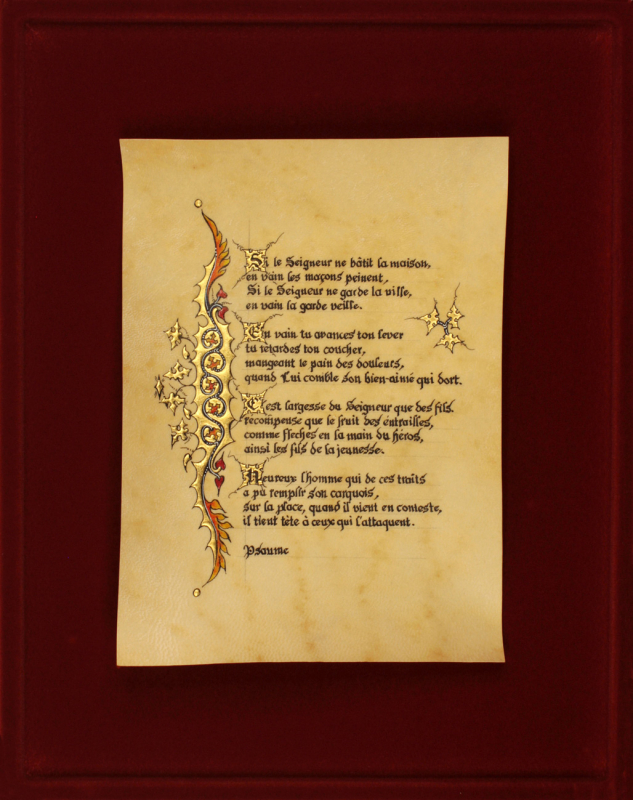 Si le Seigneur ne bâtit la maison,
en vain les maçons peinent,
Si le Seigneur ne garde la ville,
en vain la garde veille.
En vain tu avances ton lever
tu retardes ton coucher,
mangeant le pain des douleurs,
quand Lui comble son bien-aimé qui dort.
C'est largesse du Seigneur que des fils.
récompense que le fruit des entrailles,
comme flèches en la main du héros,
ainsi les fils de la jeunesse.
Heureux l'homme qui de ces traits
a pu remplir son carquois,
sur la place, quand il vient en conteste,
il tient tête à ceux qui l'attaquent.
Psaume